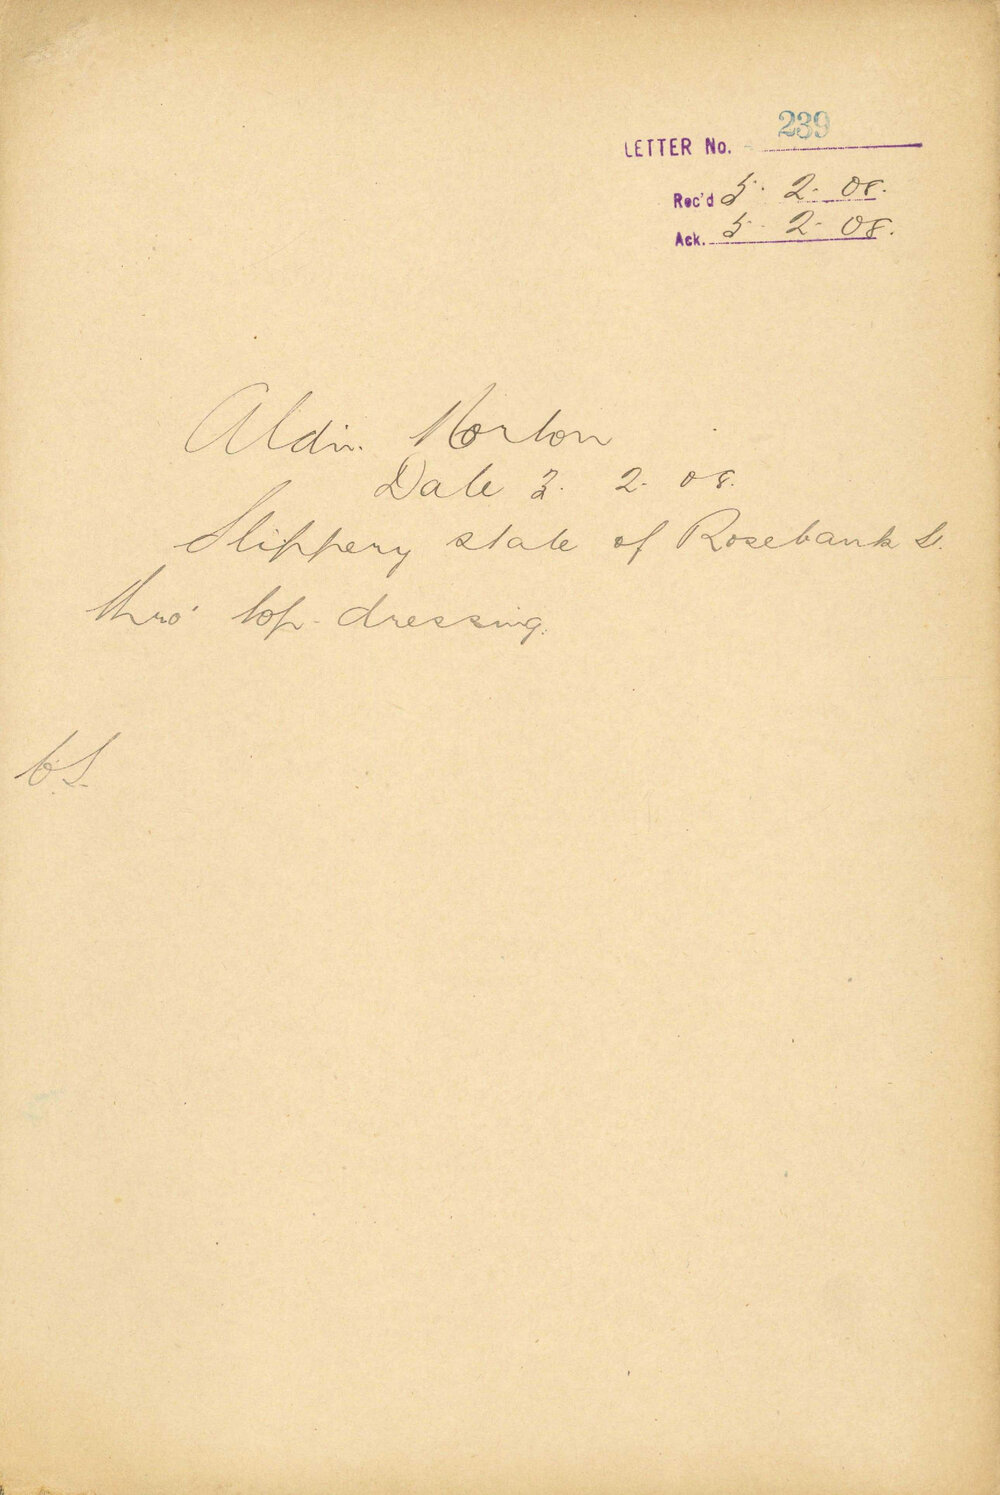 LETTER No. 239
Rec'd 5. 2. 08.
Ack. 5. 2. 08.
Aldn. Norton
Date 3. 2. 08.
Slippery state of Rosebank St.
thro' top-dressing.
C.S.